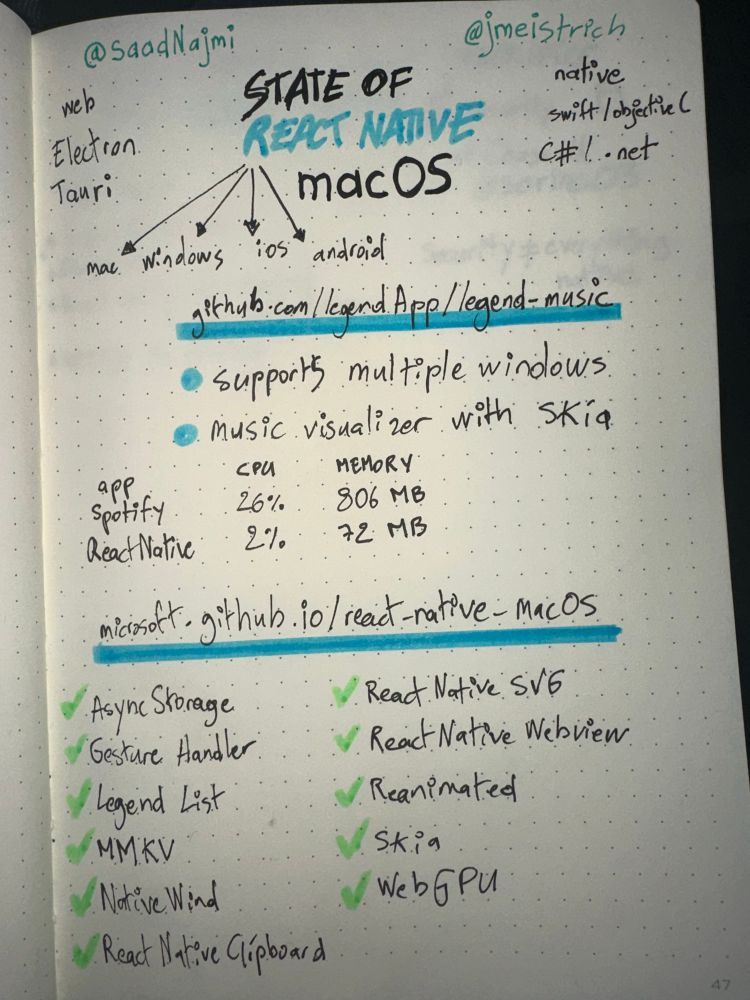 @saadNajmi
@jmeistrich
STATE OF
REACT NATIVE
macOS
web
Electron
Tauri
native
swift/objective C
C# / .net
mac windows ios android
github.com/legendApp/legend-music
supports multiple windows
music visualizer with Skia
app CPU MEMORY
Spotify 26% 806 MB
ReactNative 2% 72 MB
microsoft.github.io/react-native-macOS
AsyncStorage
Gesture Handler
Legend List
MMKV
NativeWind
React Native Clipboard
React Native SVG
React Native Webview
Reanimated
Skia
WebGPU
47